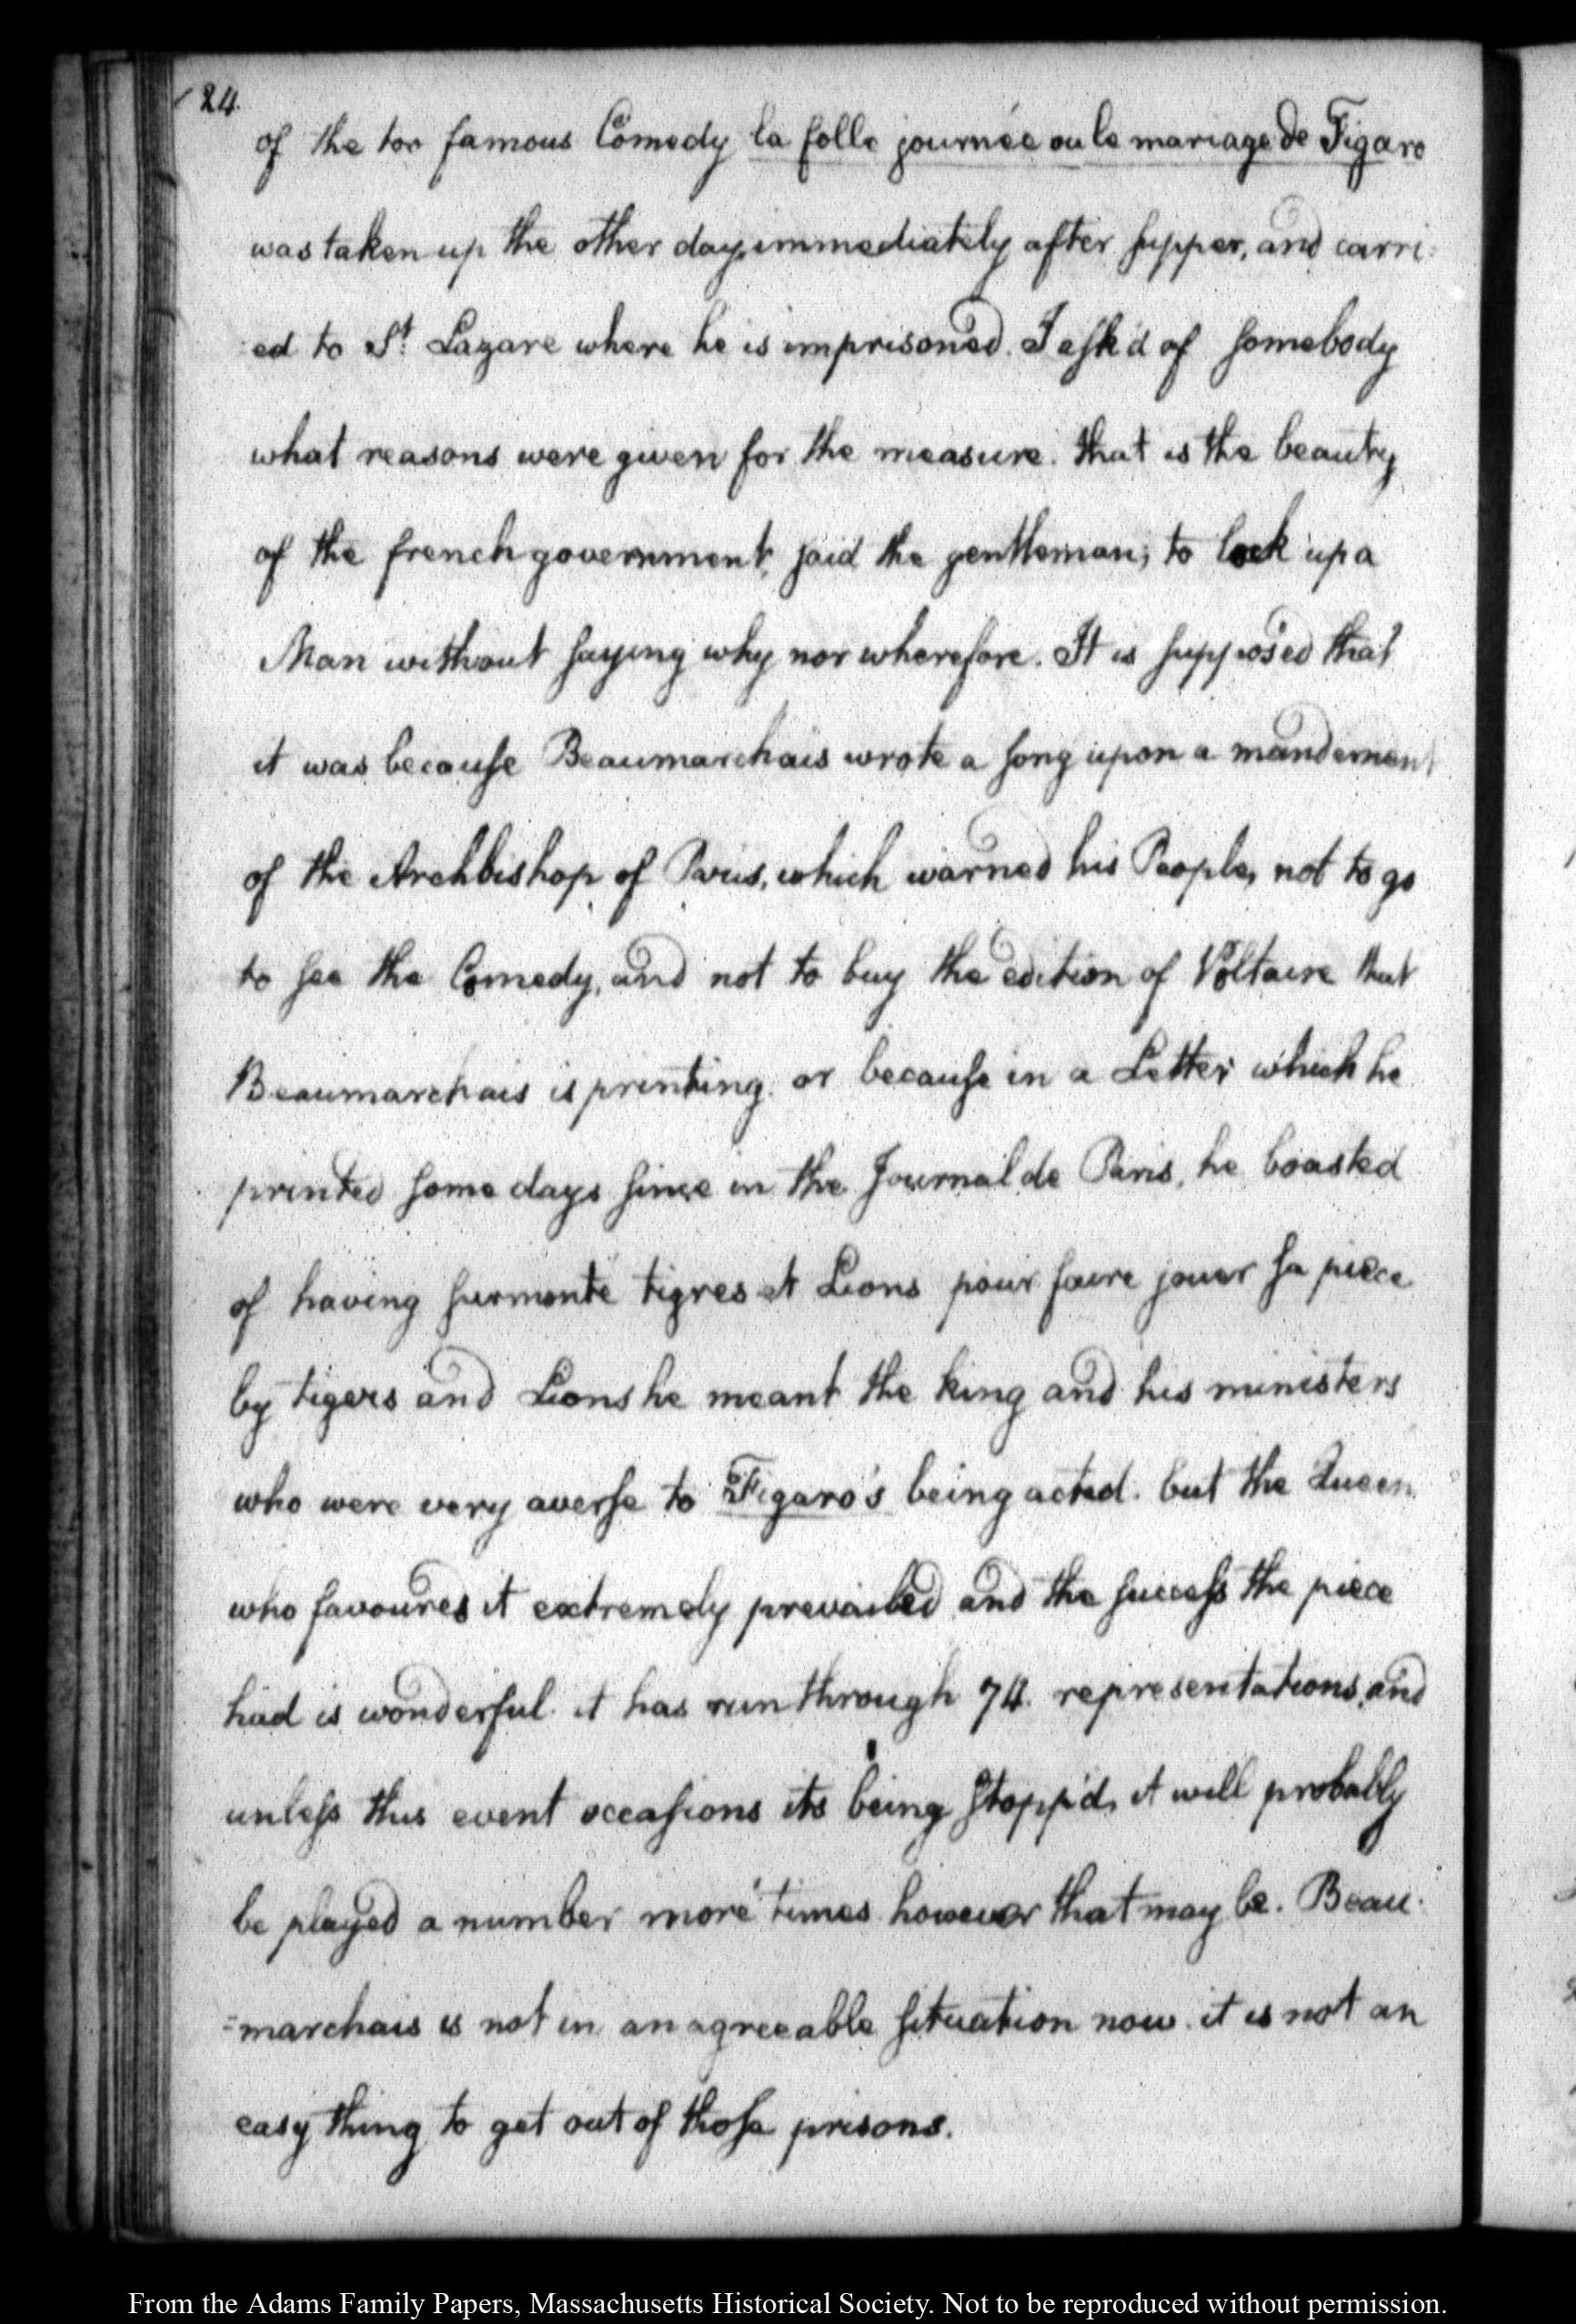 24.
of the too famous Comedy la folle journée ou le mariage de Figaro
was taken up the other day, immediately after supper, and carri-
ed to St. Lazare where he is imprisoned. I ask'd of somebody
what reasons were given for the measure. that is the beauty
of the french government, said the gentleman; to lock up a
Man without saying why nor wherefore. It is supposed that
it was because Beaumarchais wrote a song upon a mandement
of the Archbishop of Paris, which warned his People, not to go
to see the Comedy, and not to buy the edition of Voltaire that
Beaumarchais is printing. or because in a Letter which he
printed some days since in the Journal de Paris, he boasted
of having surmonté tigres et Lions pour faire jouer sa pièce
by tigers and Lions he meant the king and his ministers
who were very averse to Figaro's being acted. but the Queen
who favoured it extremely prevailed and the success the piece
had is wonderful. it has run through 74. representations, and
unless this event occasions its being stopp'd, it will probably
be played a number more times. however that may be. Beau-
=marchais is not in an agreeable situation now. it is not an
easy thing to get out of those prisons.
From the Adams Family Papers, Massachusetts Historical Society. Not to be reproduced without permission.